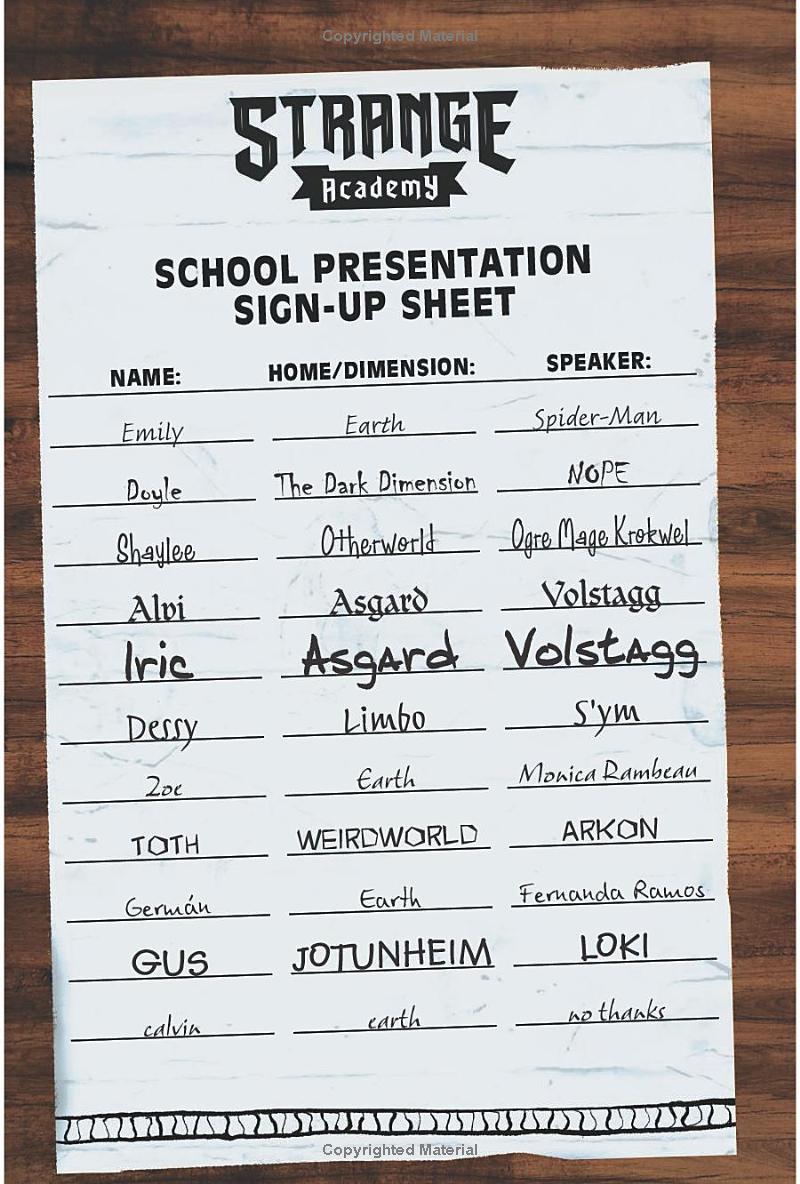 Copyrighted Material
STRANGE
Academy
SCHOOL PRESENTATION
SIGN-UP SHEET
NAME: HOME/DIMENSION: SPEAKER:
Emily Earth Spider-Man
Doyle The Dark Dimension NOPE
Shaylee Otherworld Ogre Mage Krokwel
Alvi Asgard Volstagg
Iric Asgard Volstagg
Dessy Limbo S'ym
Zoe Earth Monica Rambeau
TOTH WEIRDWORLD ARKON
Germán Earth Fernanda Ramos
GUS JOTUNHEIM LOKI
calvin earth no thanks
Copyrighted Material